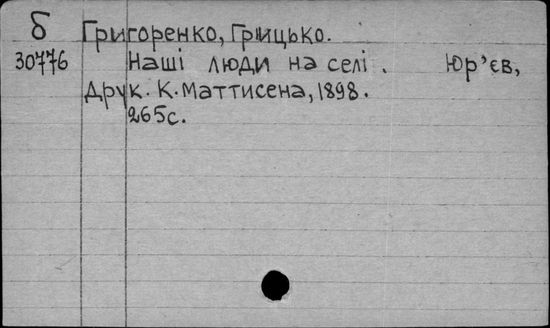 Б Григоренко, Грицько.
30776 Наші люди на селі. Юр'єв,
Друк. К. Маттисена, 1898.
265с.